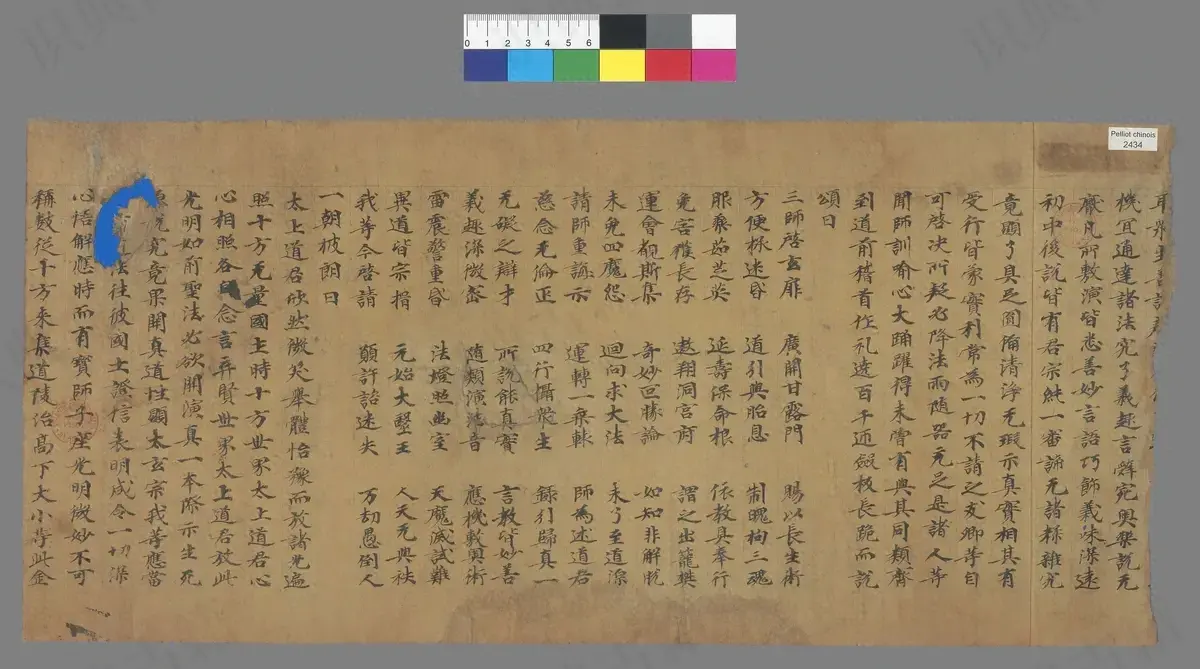 Pelliot chinois
2434
0 1 2 3 4 5 6
機宜通達諸法究了義趣言辭宛典樂說无
礙凡所敷演皆悉善妙言語巧飾義味深遠
初中後說皆有君宗純一審諦无諸穢雜究
竟顯了具足圓備清淨无瑕示真實相其有
受行皆蒙寶利常為一切不請之友卿等自
可啓決所疑必降法雨随器充足是諸人等
聞師訓喻心大踊躍得未曾有與其同類齊
到道前稽首作礼遶百千迊斂板長跪而說
頌曰
三師啓玄扉 廣開甘露門 賜以長生術
方便拯迷昏 道引與胎息 制魄拘三魂
服藥茹芝英 延壽保命根 依教具奉行
免害獲長存 遨翔洞宮府 謂之出籠樊
運會覩斯集 奇妙叵勝論 如如非解脫
未免四魔怨 迴向求大法 未了至道源
請師重誨示 運轉一乘轅 師為述道君
慈念无倫正 四行攝衆生 録引歸真一
无礙之辯才 所說能真實 言教皆妙善
義趣深微密 随類演法音 應機敷真術
雷震警重昏 法燈照幽室 天魔咸試難
異道皆宗揖 元始大聖王 人天无與袟
我等今啓請 願許詒迷失 万劫愚倒人
一朝披朗曰
太上道君欣然微笑舉體怡豫而放諸光遍
照十方无量國土時十方世界太上道君心
心相照各各念言再賢世界太上道君放此
光明如前聖法必欲開演真一本際示生死
說究竟果開真道性顯太玄宗我等應當
法往彼國土證信表明成令一切深
心悟解應時而有寶師子座光明微妙不可
稱數從千方來集道陵治高下大小等此金